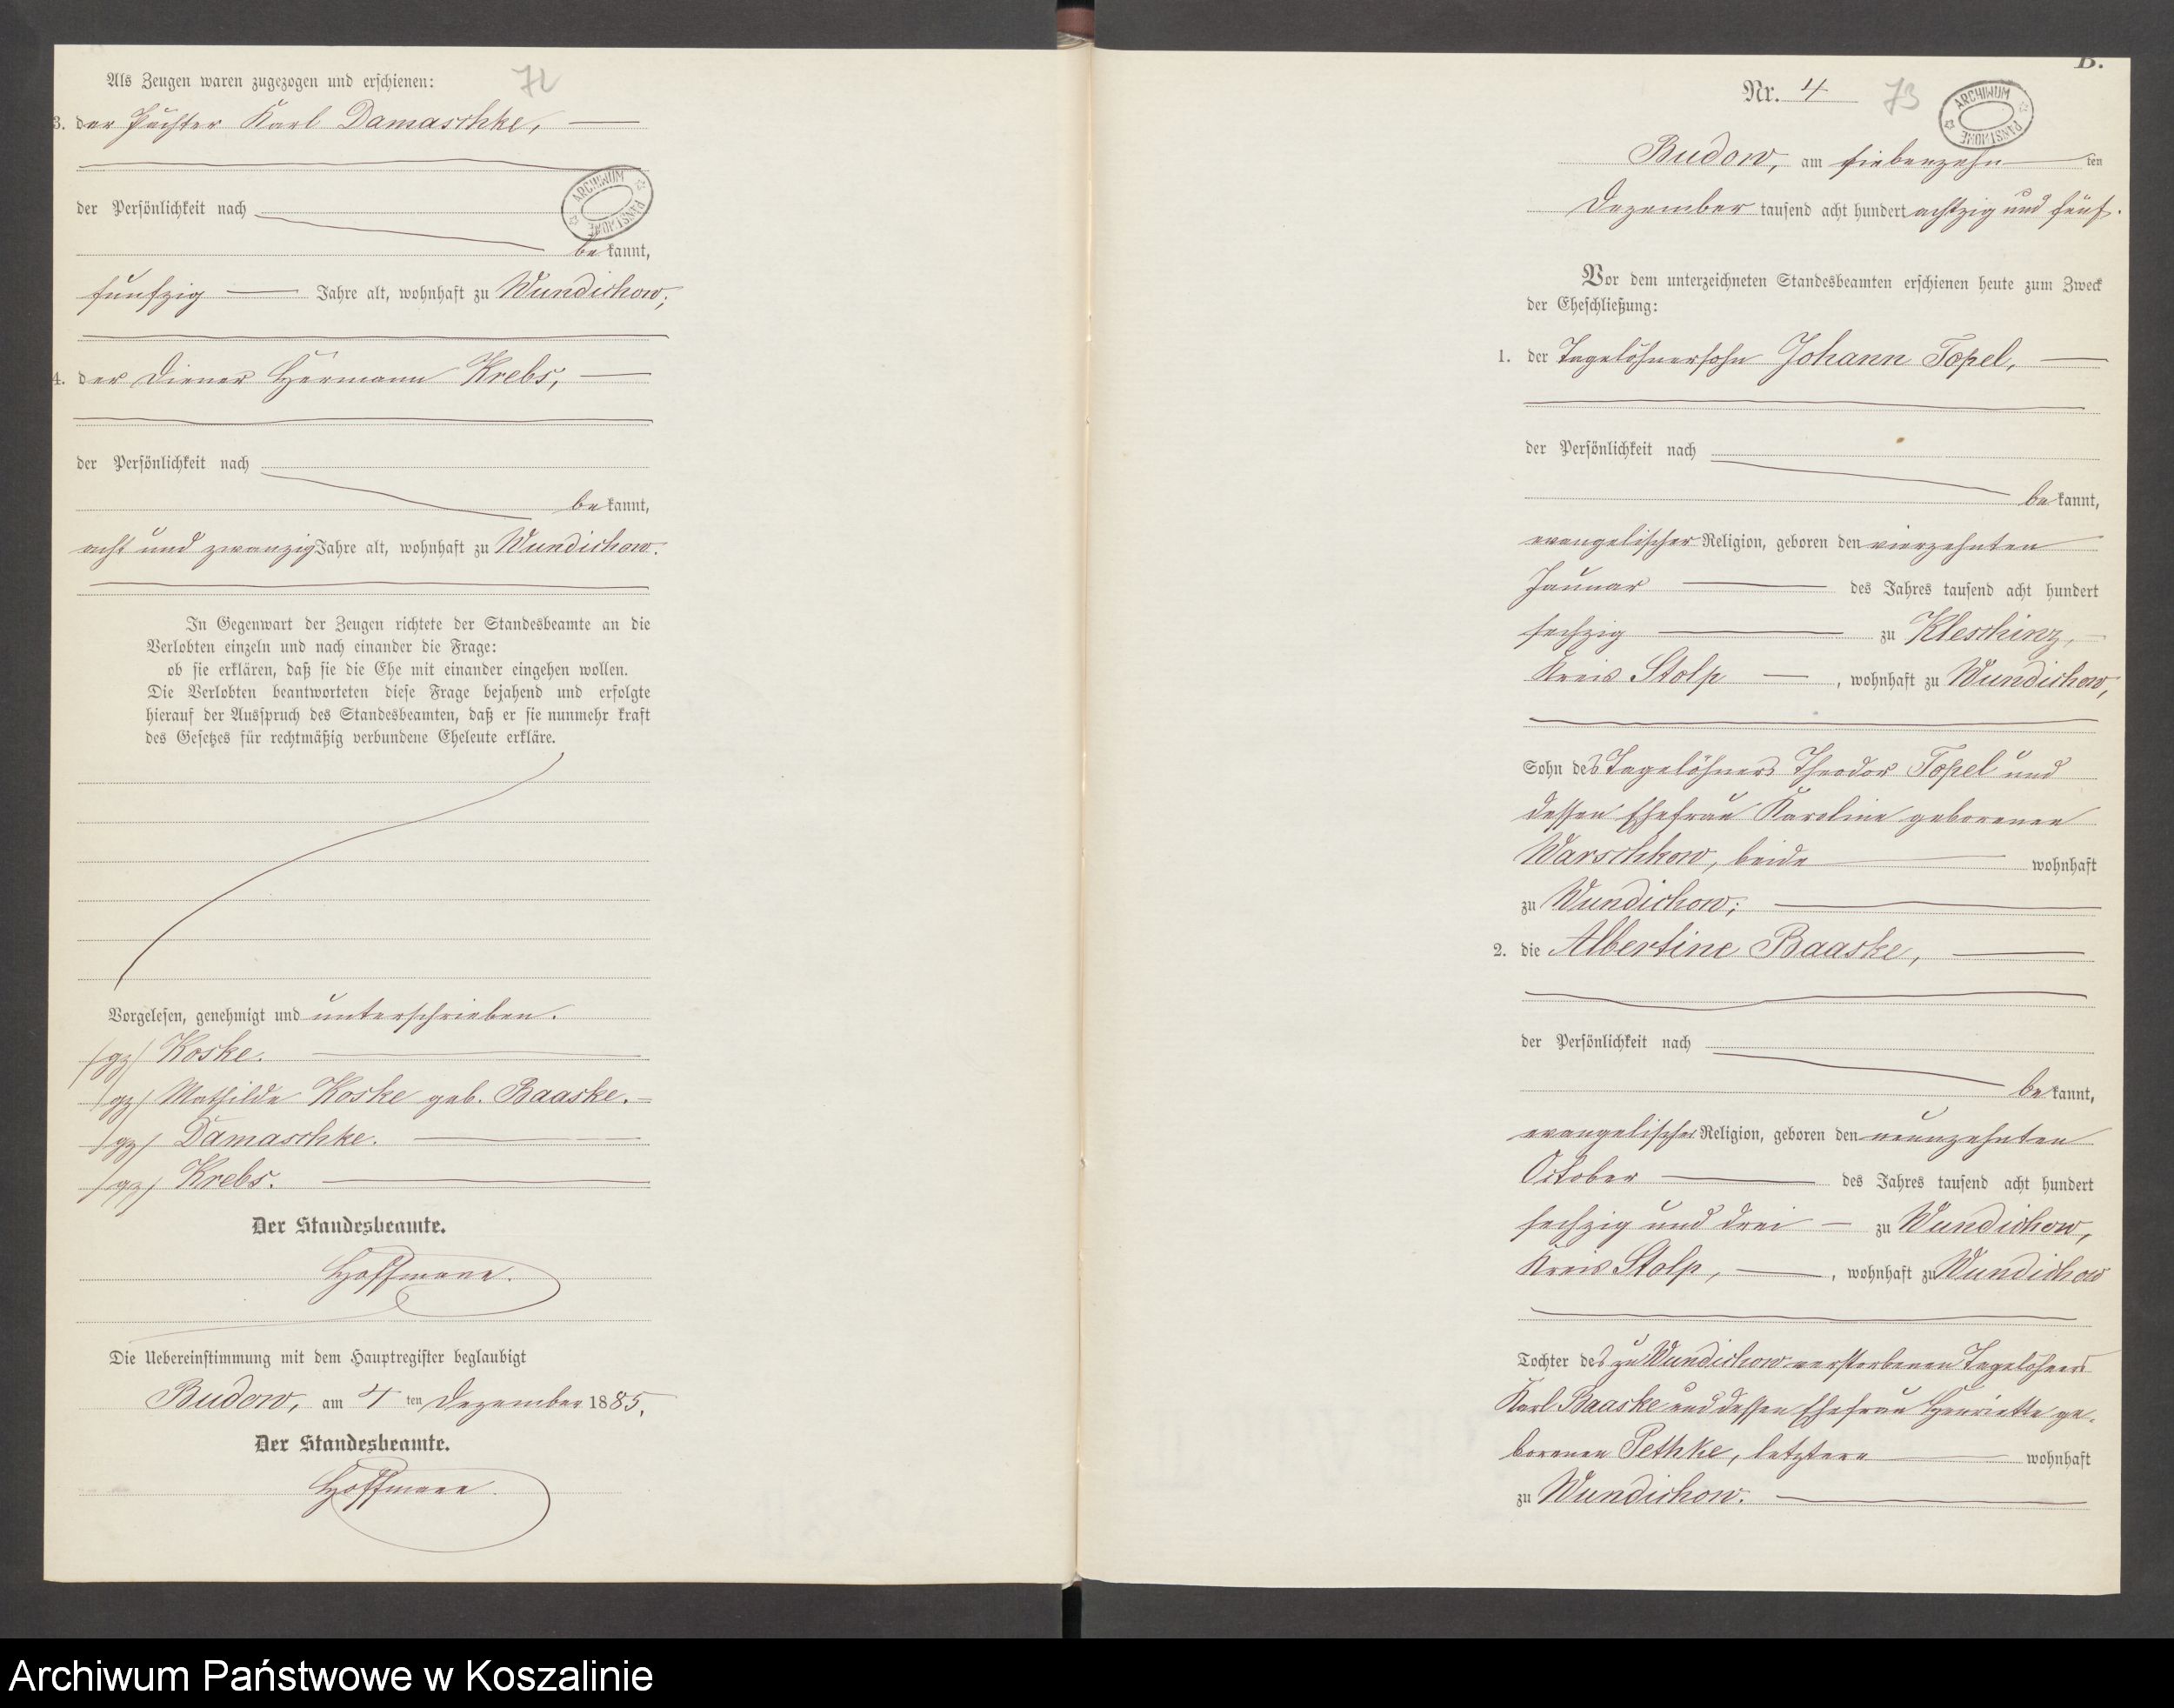 Als Zeugen waren zugezogen und erschienen:
72
3. der Pächter Karl Damaschke,
ARCHIWUM PAŃSTWOWE
der Persönlichkeit nach
bekannt,
fünfzig Jahre alt, wohnhaft zu Wundichow;
4. der Diener Hermann Krebs,
der Persönlichkeit nach
bekannt,
acht und zwanzig Jahre alt, wohnhaft zu Wundichow.
In Gegenwart der Zeugen richtete der Standesbeamte an die
Verlobten einzeln und nach einander die Frage:
ob sie erklären, daß sie die Ehe mit einander eingehen wollen.
Die Verlobten beantworteten diese Frage bejahend und erfolgte
hierauf der Ausspruch des Standesbeamten, daß er sie nunmehr kraft
des Gesetzes für rechtmäßig verbundene Eheleute erkläre.
Vorgelesen, genehmigt und unterschrieben.
/gz/ Koske.
/gz/ Mathilde Koske geb. Baaske.
/gz/ Damaschke.
/gz/ Krebs.
Der Standesbeamte.
Hoffmann.
Die Uebereinstimmung mit dem Hauptregister beglaubigt
Budow, am 4 ten Dezember 1885.
Der Standesbeamte.
Hoffmann.
B.
Nr. 4
73
ARCHIWUM PAŃSTWOWE
Budow, am siebenzehn ten
Dezember tausend acht hundert achtzig und fünf.
Vor dem unterzeichneten Standesbeamten erschienen heute zum Zweck
der Eheschließung:
1. der Tagelöhnersohn Johann Topel,
der Persönlichkeit nach
bekannt,
evangelischer Religion, geboren den vierzehnten
Januar des Jahres tausend acht hundert
sechzig zu Kleschinz,
Kreis Stolp, wohnhaft zu Wundichow,
Sohn des Tagelöhners Theodor Topel und
dessen Ehefrau Karoline geborenen
Warschkow, beide wohnhaft
zu Wundichow;
2. die Albertine Baaske,
der Persönlichkeit nach
bekannt,
evangelischer Religion, geboren den neunzehnten
October des Jahres tausend acht hundert
sechzig und drei zu Wundichow,
Kreis Stolp, , wohnhaft zu Wundichow
Tochter des zu Wundichow verstorbenen Tagelöhners
Karl Baaske und dessen Ehefrau Henriette ge-
borenen Pethke, letztere wohnhaft
zu Wundichow.
Archiwum Państwowe w Koszalinie